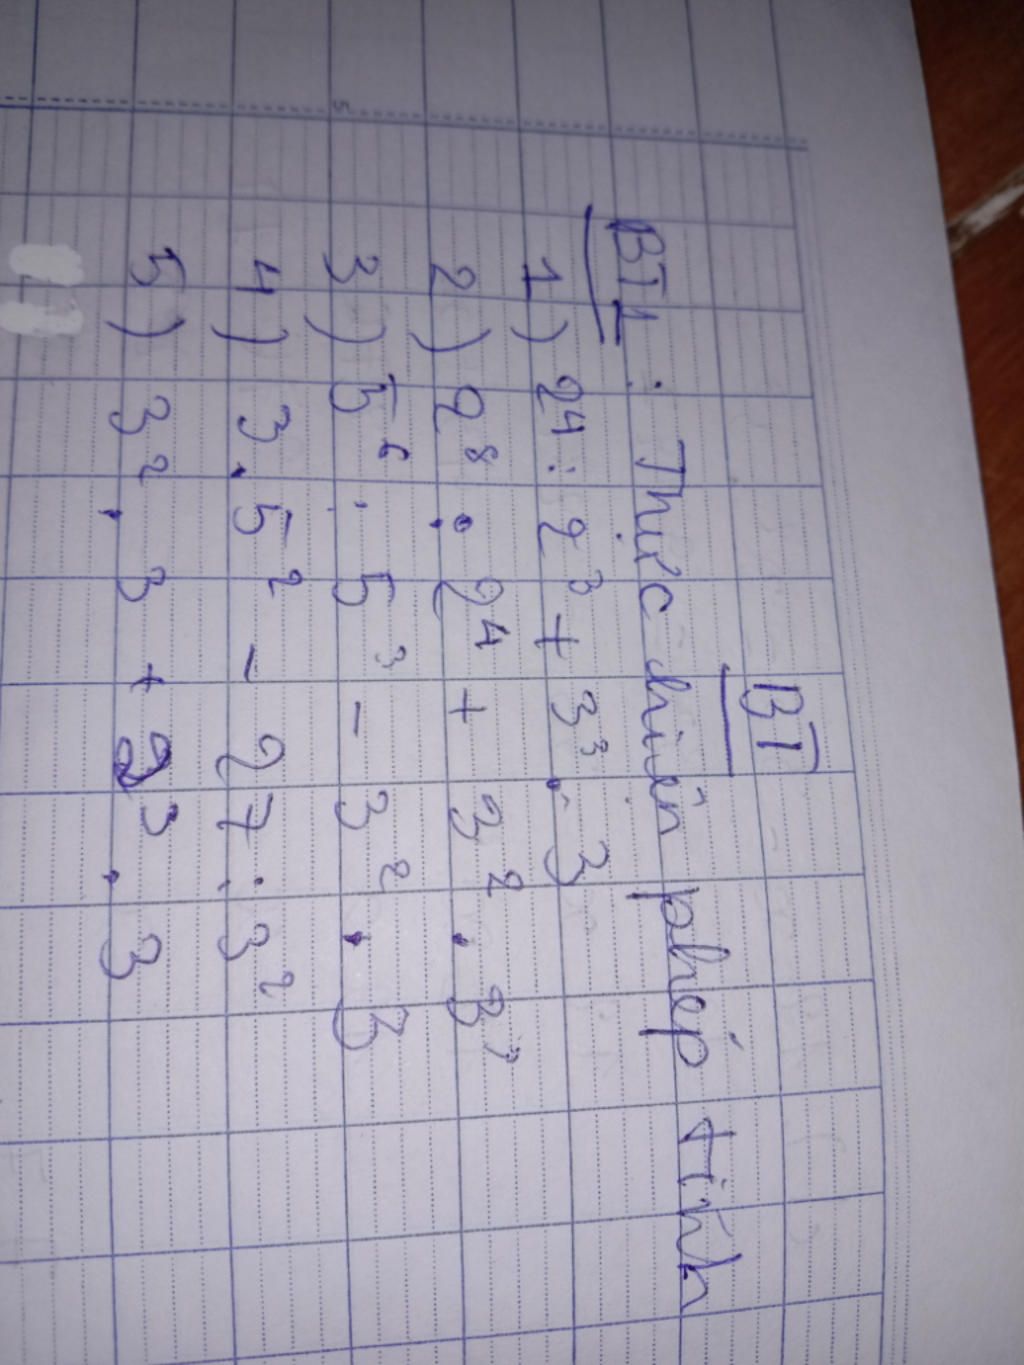 BT
BT1: Thực hiện phép tính
1) 2⁴ : 2³ + 3³ . 3
2) 2⁸ : 2⁴ + 3² . 3
3) 5⁶ : 5³ - 3² . 3
4) 3 . 5² - 27 : 3²
5) 3² . 3 + 2³ . 3